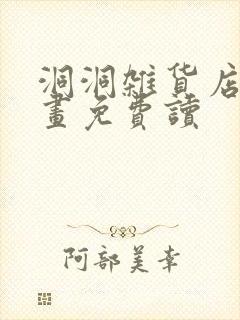 洞洞雜貨店
畫免費讀
阿部美幸